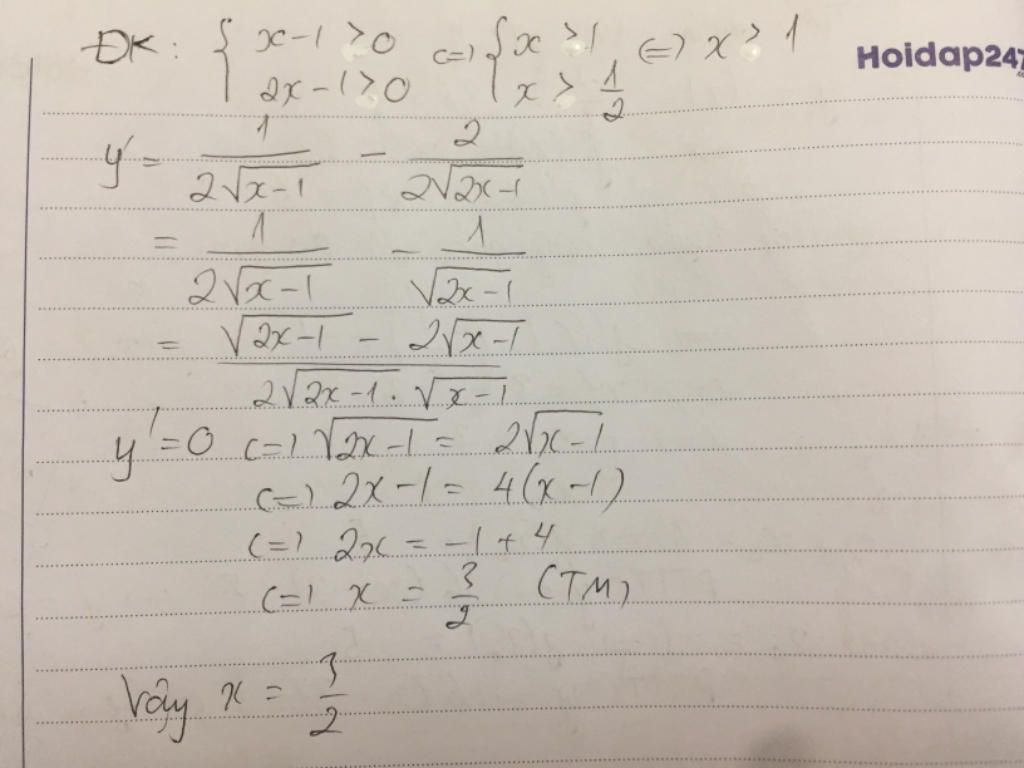 ĐK: { x-1 > 0 <=> { x > 1 <=> x > 1
2x-1 > 0 x > 1/2
Hoidap247
y' = 1/(2√(x-1)) - 2/(2√(2x-1))
= 1/(2√(x-1)) - 1/√(2x-1)
= (√(2x-1) - 2√(x-1))/(2√(2x-1) . √(x-1))
y' = 0 <=> √(2x-1) = 2√(x-1)
<=> 2x-1 = 4(x-1)
<=> 2x = -1+4
<=> x = 3/2 (TM)
Vậy x = 3/2